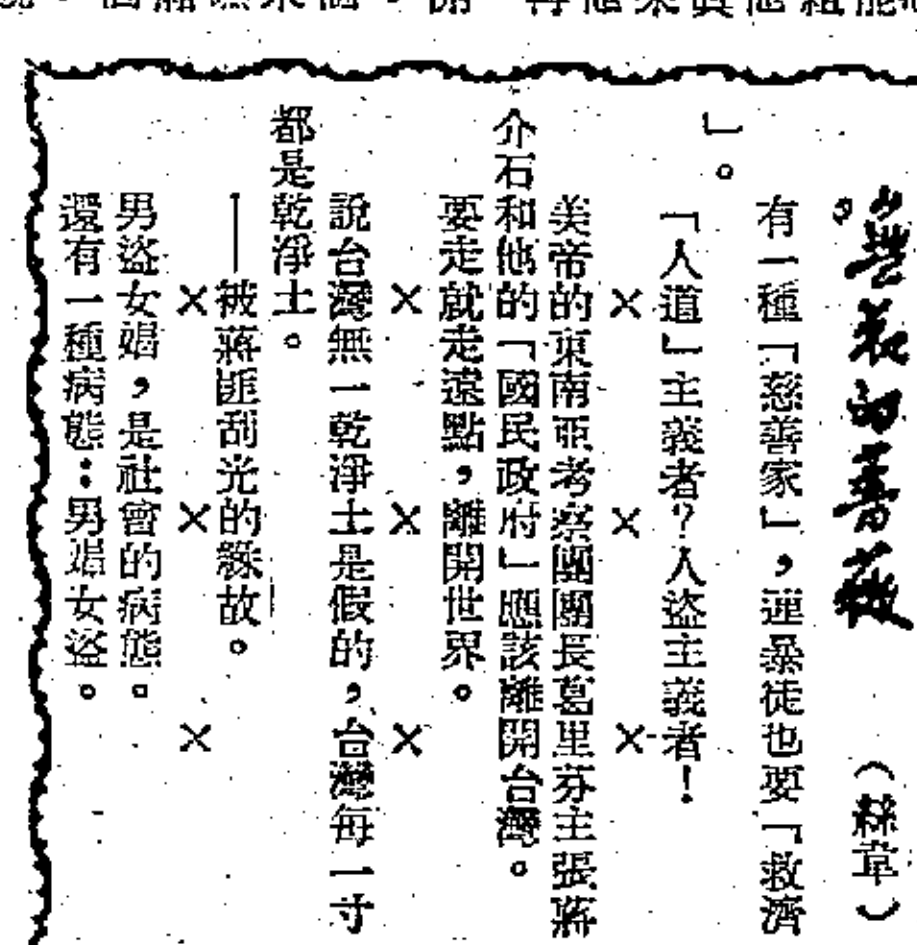 (絲韋)
有一種「慈善家」，連暴徒也要「救濟
」。
「人道」主義者？人盜主義者！
× × ×
美帝的東南亞考察團團長葛里芬主張蔣
介石和他的「國民政府」應該離開台灣。
要走就走遠點，離開世界。
× × ×
說台灣無一乾淨土是假的，台灣每一寸
都是乾淨土。
——被蔣匪刮光的緣故。
× × ×
男盜女娼，是社會的病態。
還有一種病態：男娼女盜。